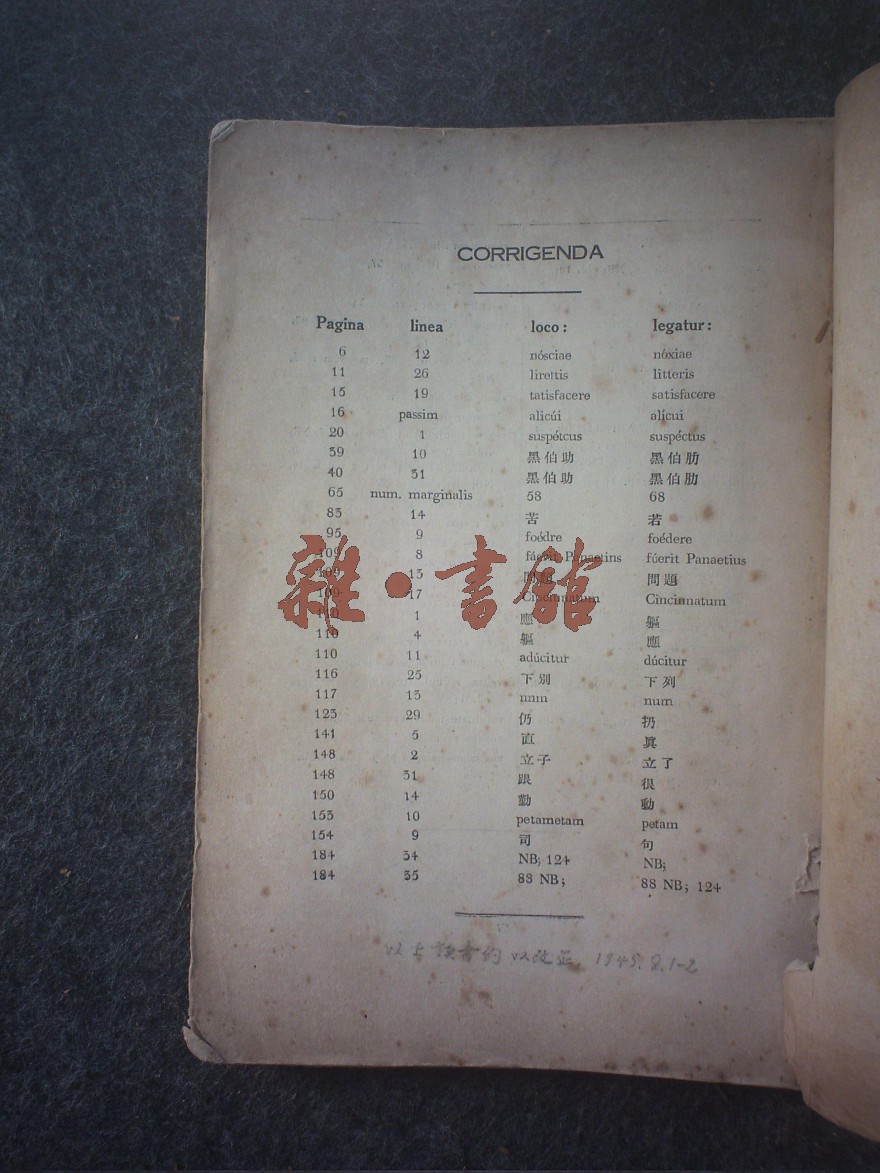 CORRIGENDA
Pagina linea loco: legatur:
6 12 nósciae nóxiae
11 26 lirettis litteris
15 19 tatisfacere satisfacere
16 passim alicúi alícui
20 1 suspétcus suspéctus
39 10 黑伯助 黑伯肋
40 31 黑伯助 黑伯肋
65 num. marginalis 58 68
83 14 苦 若
95 9 foédre foédere
109 8 fáerit Panaetins fúerit Panaetius
15 問 問題
17 Cincennatum Cincinnatum
1 應 軀
110 4 軀 應
110 11 adúcitur dúcitur
116 25 下别 下列
117 15 nnm num
123 29 仍 扔
141 5 直 眞
148 2 立子 立了
148 31 跟 很
150 14 勤 動
153 10 petametam petam
154 9 司 句
184 34 NB; 124 NB;
184 35 88 NB; 88 NB; 124
雜·書館
以改正 1945.8.1-2